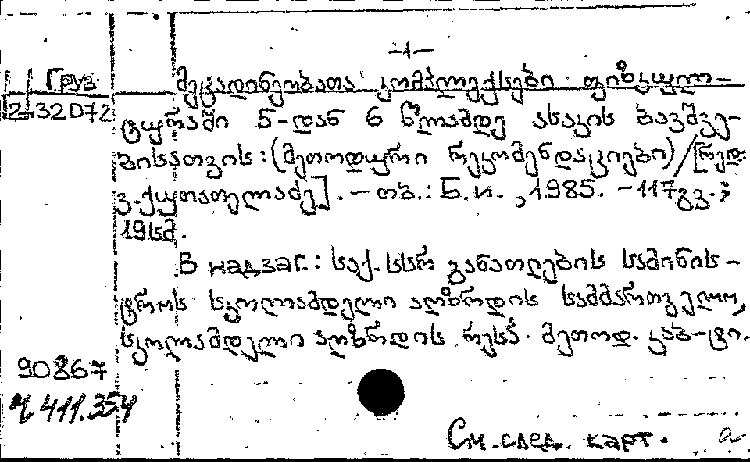 -1-
Груз
2-32072
მეცადინეობათა კომპლექსები ფიზკულ-
ტურაში 5-დან 6 წლამდე ასაკის ბავშვე-
ბისათვის: (მეთოდური რეკომენდაციები) / [რედ.
ვ. ქუთათელაძე]. - თბ.: Б.и., 1985. - 117 გვ.;
19 სმ.
В надзаг.: საქ. სსრ განათლების სამინის-
ტროს სკოლამდელი აღზრდის სამმართველო,
სკოლამდელი აღზრდის რესპ. მეთოდ. კაბ-ტი.
90867
Ч 411.354
См. след. карт. а